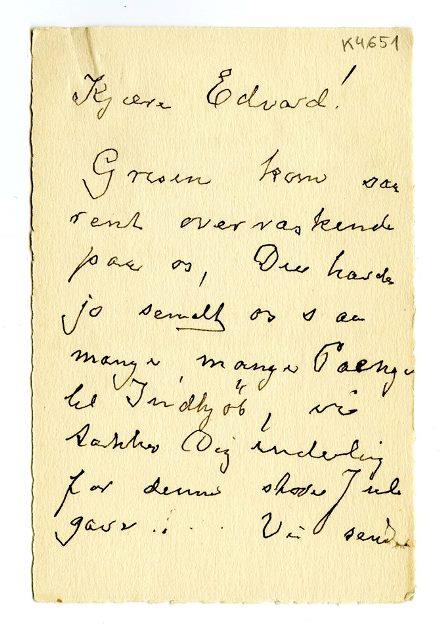 K4651
Kjære Edvard!
Grisen kom saa
rent overraskende
paa os, Du havde
jo sendt os saa
mange, mange Paenge
til Indkjöb, vi
takker Dig inderlig
for denne store Jule
gave.... Vi sender